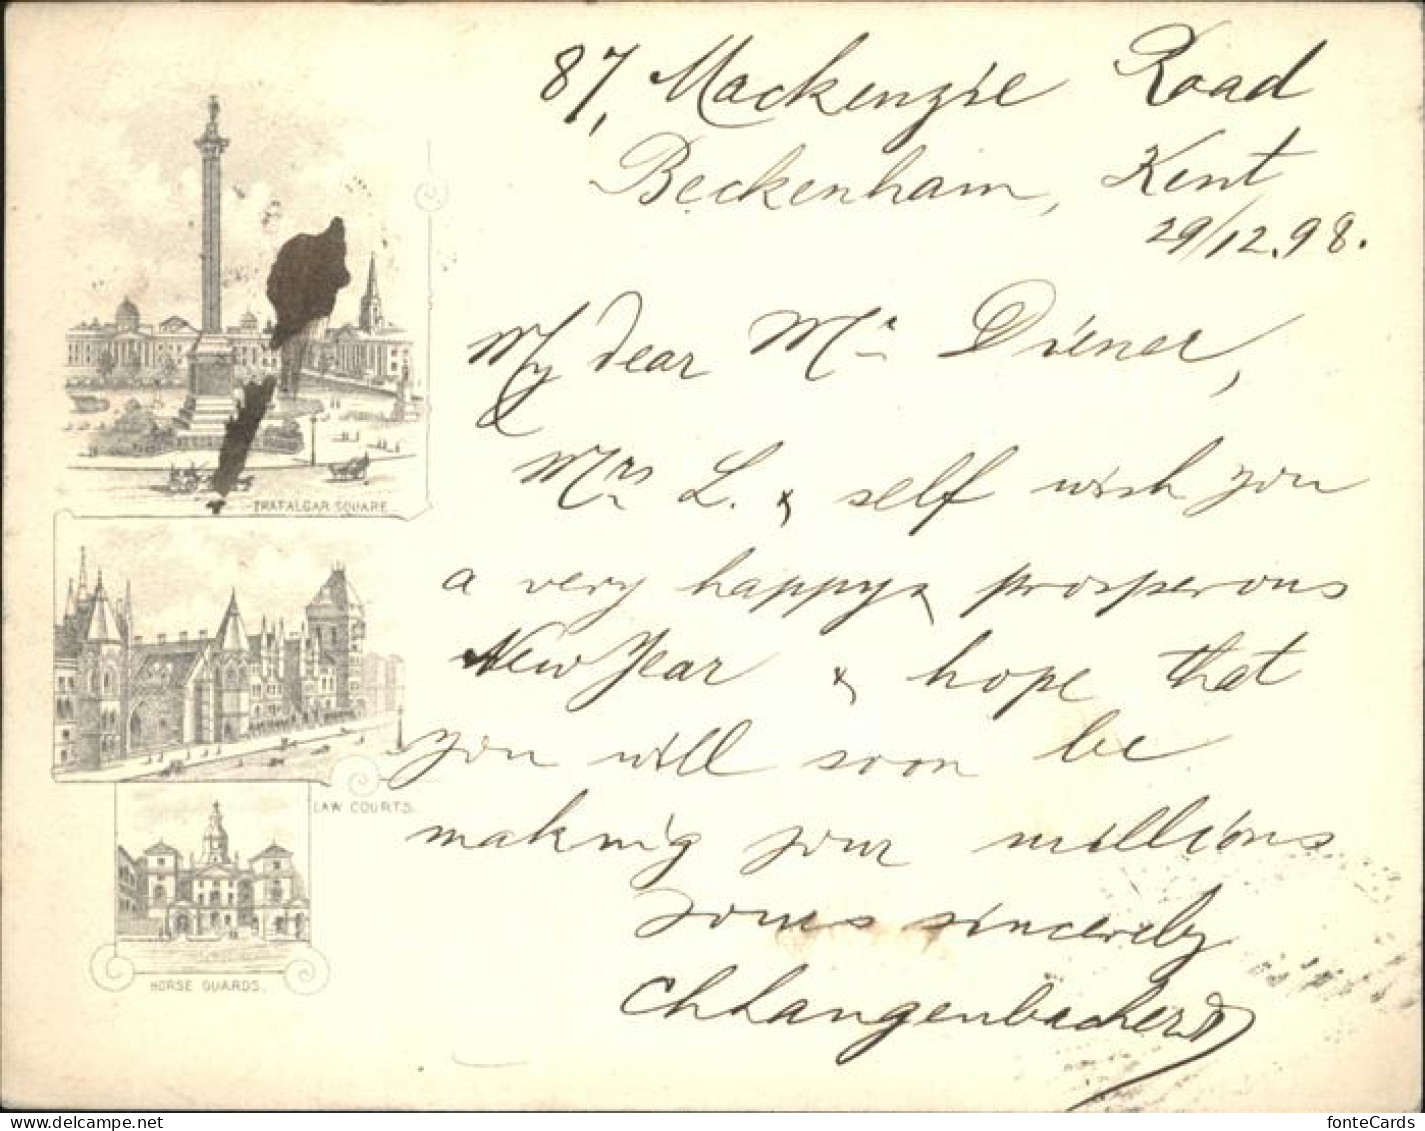 87, Mackenzie Road
Beckenham, Kent
29/12.98.
My dear Mr Diener,
Mrs L. & self wish you
a very happy & prosperous
New Year & hope that
you will soon be
making your millions
Yours sincerely
CHLangenbacher
TRAFALGAR SQUARE
LAW COURTS.
HORSE GUARDS.
fonteCards